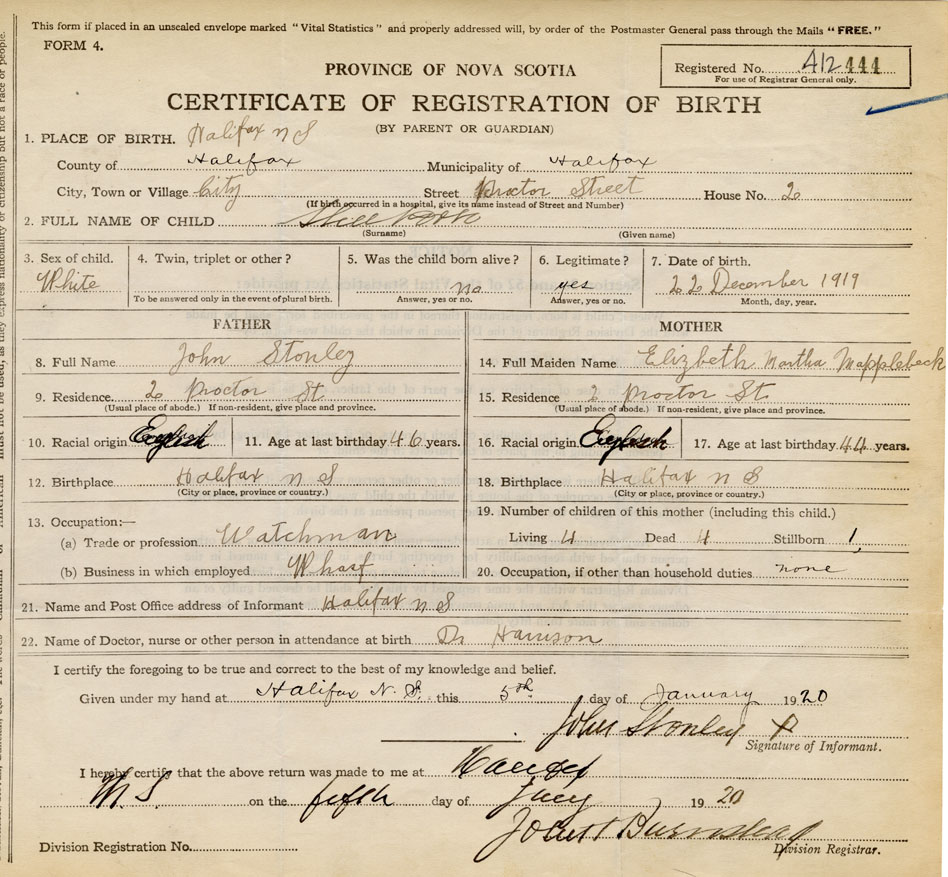 This form if placed in an unsealed envelope marked "Vital Statistics" and properly addressed will, by order of the Postmaster General pass through the Mails "FREE."
FORM 4.
PROVINCE OF NOVA SCOTIA
Registered No. 412 444
For use of Registrar General only.
CERTIFICATE OF REGISTRATION OF BIRTH
(BY PARENT OR GUARDIAN)
1. PLACE OF BIRTH. Halifax n S
County of Halifax Municipality of Halifax
City, Town or Village City Street Proctor Street House No. 2
(If birth occurred in a hospital, give its name instead of Street and Number)
2. FULL NAME OF CHILD Still Born
(Surname) (Given name)
3. Sex of child. 4. Twin, triplet or other? 5. Was the child born alive? 6. Legitimate? 7. Date of birth.
White no yes 22 December 1919
To be answered only in the event of plural birth. Answer, yes or no. Answer, yes or no. Month, day, year.
FATHER MOTHER
8. Full Name John Stonley 14. Full Maiden Name Elizbeth Martha Mapplebeck
9. Residence 2 Proctor St 15. Residence 2 Proctor St
(Usual place of abode.) If non-resident, give place and province. (Usual place of abode.) If non-resident, give place and province.
10. Racial origin English 11. Age at last birthday 46 years. 16. Racial origin English 17. Age at last birthday 44 years.
12. Birthplace Halifax n S 18. Birthplace Halifax n S
(City or place, province or country.) (City or place, province or country.)
13. Occupation:— 19. Number of children of this mother (including this child.)
(a) Trade or profession Watchman Living 4 Dead 4 Stillborn 1
(b) Business in which employed Wharf 20. Occupation, if other than household duties. none
21. Name and Post Office address of Informant Halifax n S
22. Name of Doctor, nurse or other person in attendance at birth Dr Harrison
I certify the foregoing to be true and correct to the best of my knowledge and belief.
Given under my hand at Halifax N. S. this 5th day of January 1920
John Stonley X
Signature of Informant.
I hereby certify that the above return was made to me at
N. S. on the fifth day of 1920
Division Registration No. Division Registrar.